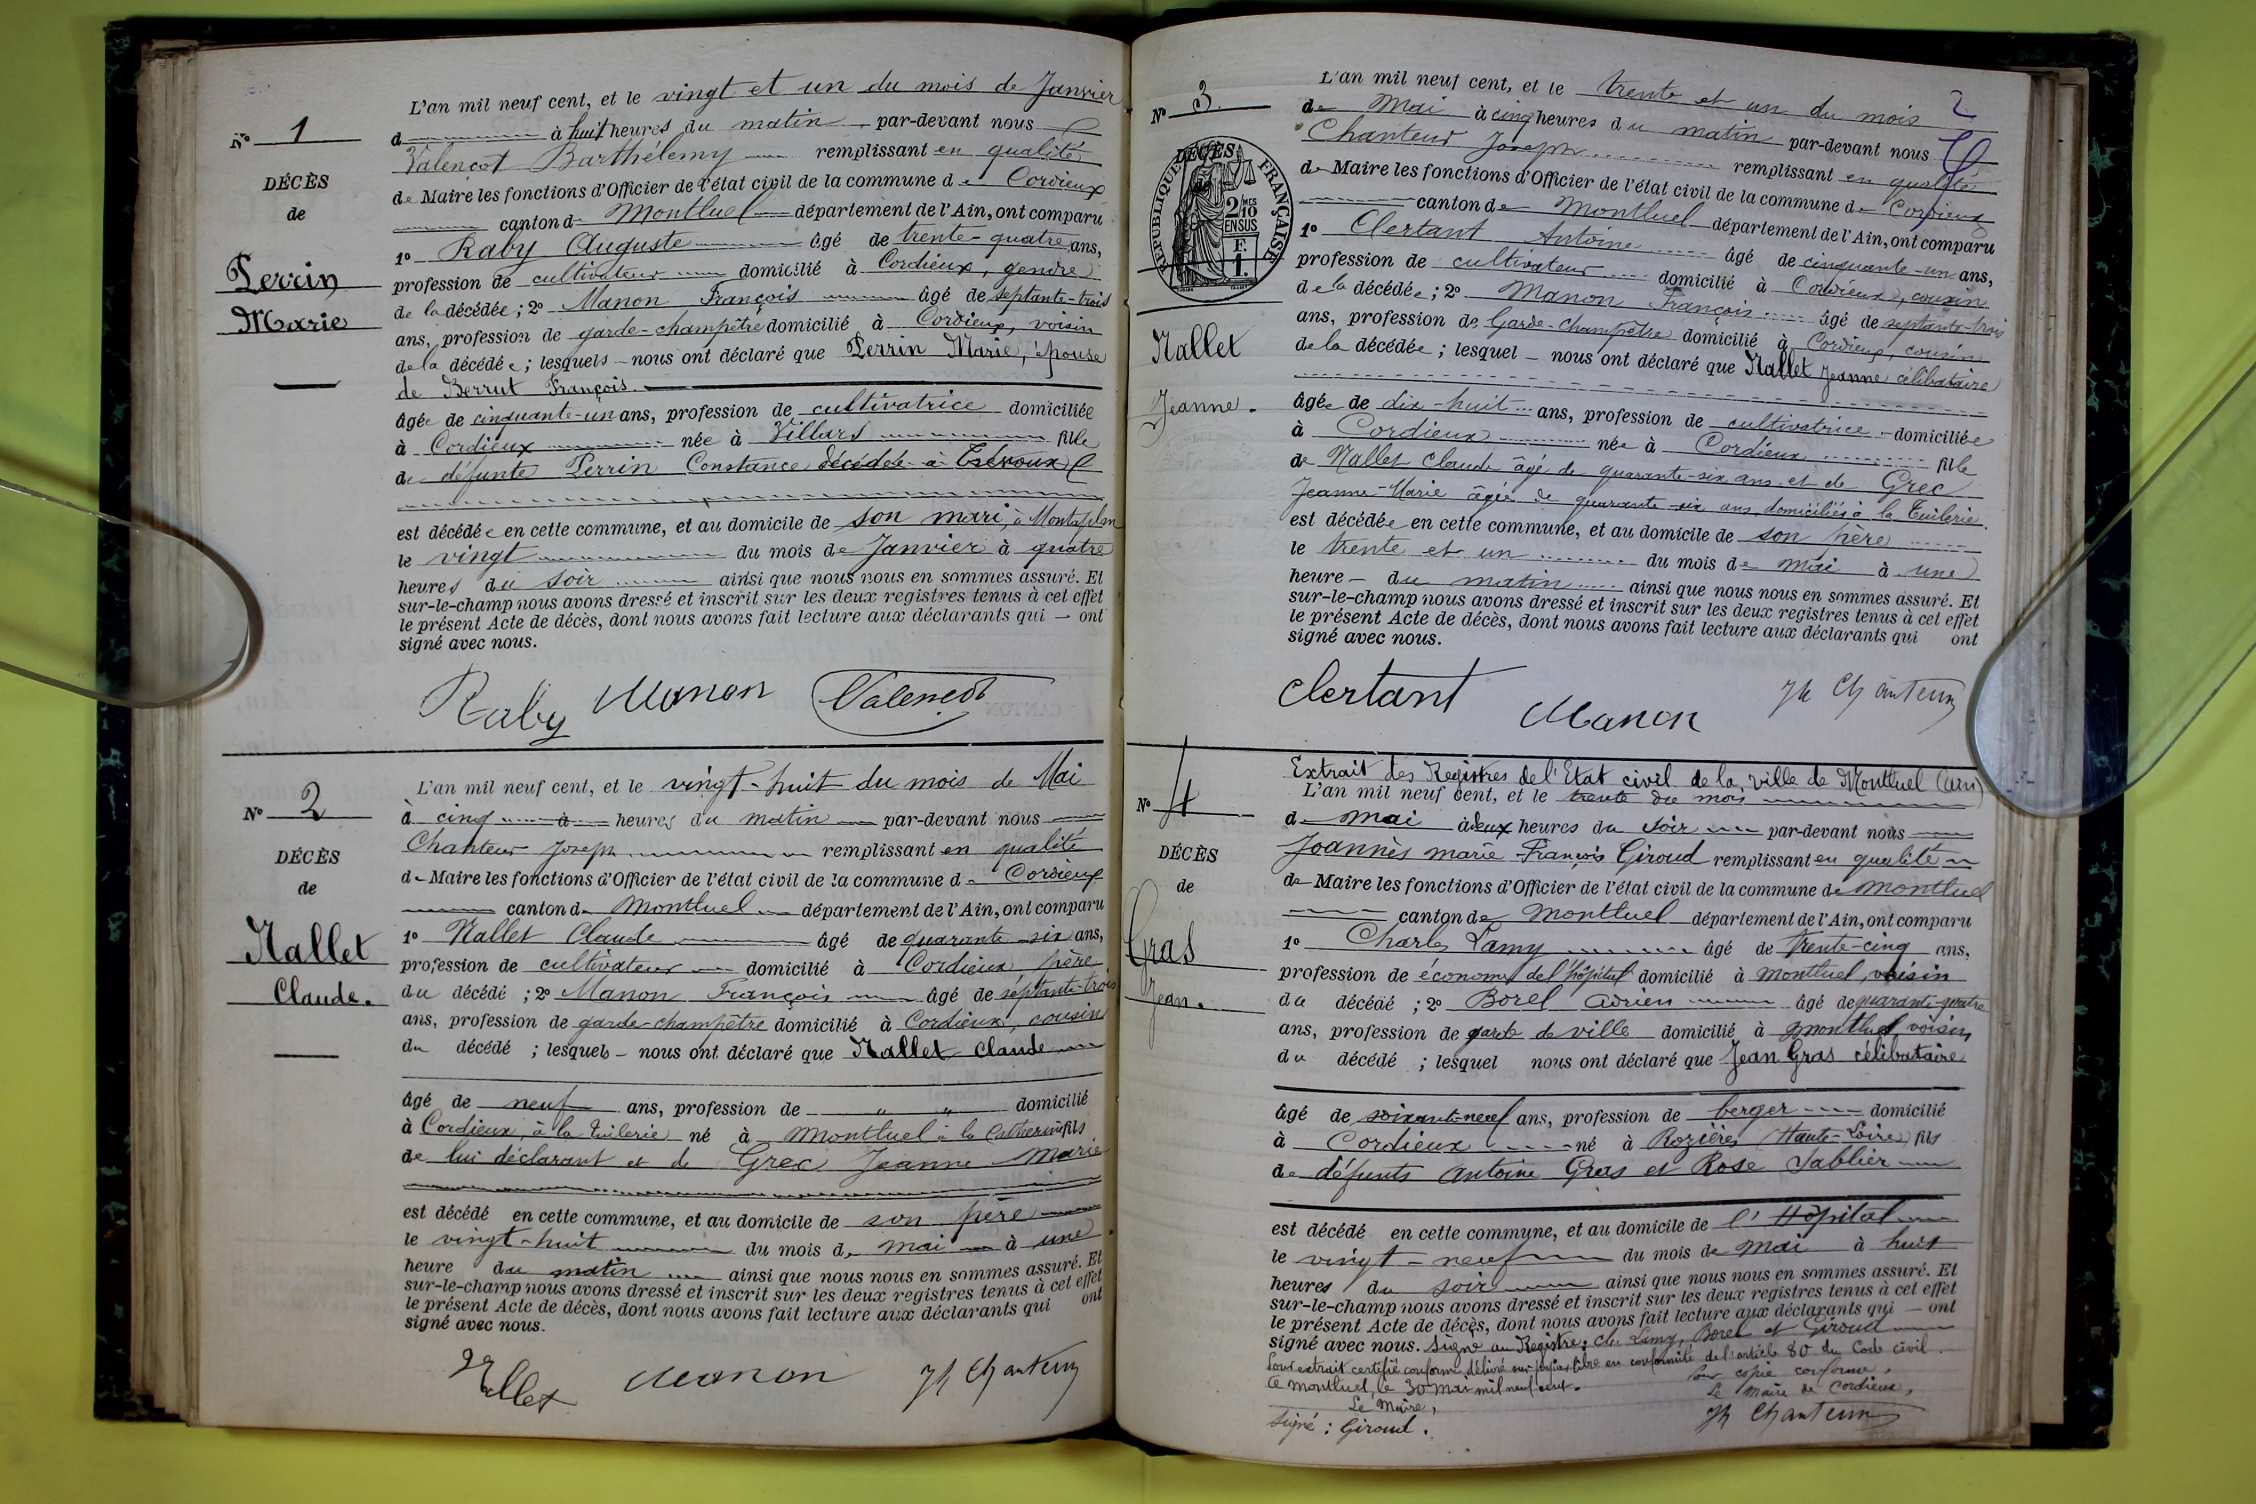 L'an mil neuf cent, et le vingt et un du mois de Janvier
N° 1
d à huit heures du matin par-devant nous
Valençot Barthélemy remplissant en qualité
DÉCÈS
de Maire les fonctions d'Officier de l'état civil de la commune de Cordieux
de
canton de Montluel département de l'Ain, ont comparu
1° Raby Auguste âgé de trente-quatre ans,
Perrin
profession de cultivateur domicilié à Cordieux, gendre
de la décédée ; 2° Manon François âgé de septante-trois
Marie
ans, profession de garde-champêtre domicilié à Cordieux, voisin
de la décédée ; lesquels nous ont déclaré que Perrin Marie, épouse
de Berrut François.
âgée de cinquante-un ans, profession de cultivatrice domiciliée
à Cordieux née à Villars fille
de défunte Perrin Constance décédée à Trévoux
est décédée en cette commune, et au domicile de son mari, à
le vingt du mois de Janvier à quatre
heures du soir ainsi que nous nous en sommes assuré. Et
sur-le-champ nous avons dressé et inscrit sur les deux registres tenus à cet effet
le présent Acte de décès, dont nous avons fait lecture aux déclarants qui — ont
signé avec nous.
Raby Manon Valençot
L'an mil neuf cent, et le vingt-huit du mois de Mai
N° 2
à cinq heures du matin par-devant nous
Chanteur Joseph remplissant en qualité
DÉCÈS
de Maire les fonctions d'Officier de l'état civil de la commune de Cordieux
de
canton de Montluel département de l'Ain, ont comparu
1° Nallet Claude âgé de quarante-six ans,
Nallet
profession de cultivateur domicilié à Cordieux, père
Claude.
du décédé ; 2° Manon François âgé de septante-trois
ans, profession de garde-champêtre domicilié à Cordieux, cousin
du décédé ; lesquels nous ont déclaré que Nallet Claude
âgé de neuf ans, profession de " " domicilié
à Cordieux, à la Tuilerie né à Montluel à la fils
de lui déclarant et de Grec Jeanne Marie
est décédé en cette commune, et au domicile de son père
le vingt-huit du mois de mai à une
heure du matin ainsi que nous nous en sommes assuré. Et
sur-le-champ nous avons dressé et inscrit sur les deux registres tenus à cet effet
le présent Acte de décès, dont nous avons fait lecture aux déclarants qui ont
signé avec nous.
Nallet Manon Jh Chanteur
2
L'an mil neuf cent, et le trente et un du mois
N° 3.
de Mai à cinq heures du matin par-devant nous
Chanteur Joseph remplissant en qualité
DÉCÈS
RÉPUBLIQUE FRANÇAISE
2/10 MES
EN SUS
F.
1.
de Maire les fonctions d'Officier de l'état civil de la commune de Cordieux
canton de Montluel département de l'Ain, ont comparu
1° Clertant Antoine âgé de cinquante-un ans,
profession de cultivateur domicilié à Cordieux, cousin
de la décédée ; 2° Manon François âgé de septante-trois
Nallet
ans, profession de Garde-champêtre domicilié à Cordieux, cousin
de la décédée ; lesquel — nous ont déclaré que Nallet Jeanne célibataire
Jeanne.
âgée de dix-huit ans, profession de cultivatrice domiciliée
à Cordieux née à Cordieux fille
de Nallet Claude âgé de quarante-six ans et de Grec
Jeanne-Marie âgée de quarante-six ans domiciliés à la Tuilerie.
est décédée en cette commune, et au domicile de son père
le trente et un du mois de mai à une
heure — du matin ainsi que nous nous en sommes assuré. Et
sur-le-champ nous avons dressé et inscrit sur les deux registres tenus à cet effet
le présent Acte de décès, dont nous avons fait lecture aux déclarants qui ont
signé avec nous.
Clertant Manon Jh Chanteur
Extrait des Registres de l'Etat civil de la ville de Montluel (ain)
N° 4
L'an mil neuf cent, et le trente du mois
de mai à deux heures du soir par-devant nous
DÉCÈS
Joannès marie-François Giroud remplissant en qualité
de
de Maire les fonctions d'Officier de l'état civil de la commune de montluel
canton de montluel département de l'Ain, ont comparu
Gras
1° Charles Lamy âgé de trente-cinq ans,
profession de économe de l'hôpital domicilié à montluel, voisin
Jean.
du décédé ; 2° Borel adrien âgé de quarante-quatre
ans, profession de garde de ville domicilié à montluel, voisin
du décédé ; lesquel nous ont déclaré que Jean Gras célibataire
âgé de soixante-neuf ans, profession de berger domicilié
à Cordieux né à Rozières (Haute-Loire) fils
de défunts antoine Gras et Rose Sablier
est décédé en cette commune, et au domicile de l'Hôpital
le vingt-neuf du mois de mai à huit
heures du soir ainsi que nous nous en sommes assuré. Et
sur-le-champ nous avons dressé et inscrit sur les deux registres tenus à cet effet
le présent Acte de décès, dont nous avons fait lecture aux déclarants qui — ont
signé avec nous. Signé au Registre : Ch. Lamy, Borel et Giroud
Pour extrait certifié conforme, délivré sur papier libre en conformité de l'article 80 du Code civil.
a montluel, le 30 mai mil neuf cent. Pour copie conforme,
Le Maire, Le Maire de Cordieux,
signé : Giroud. Jh Chanteur